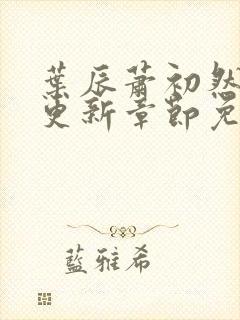 葉辰蕭初然
更新章節免
藍雅希